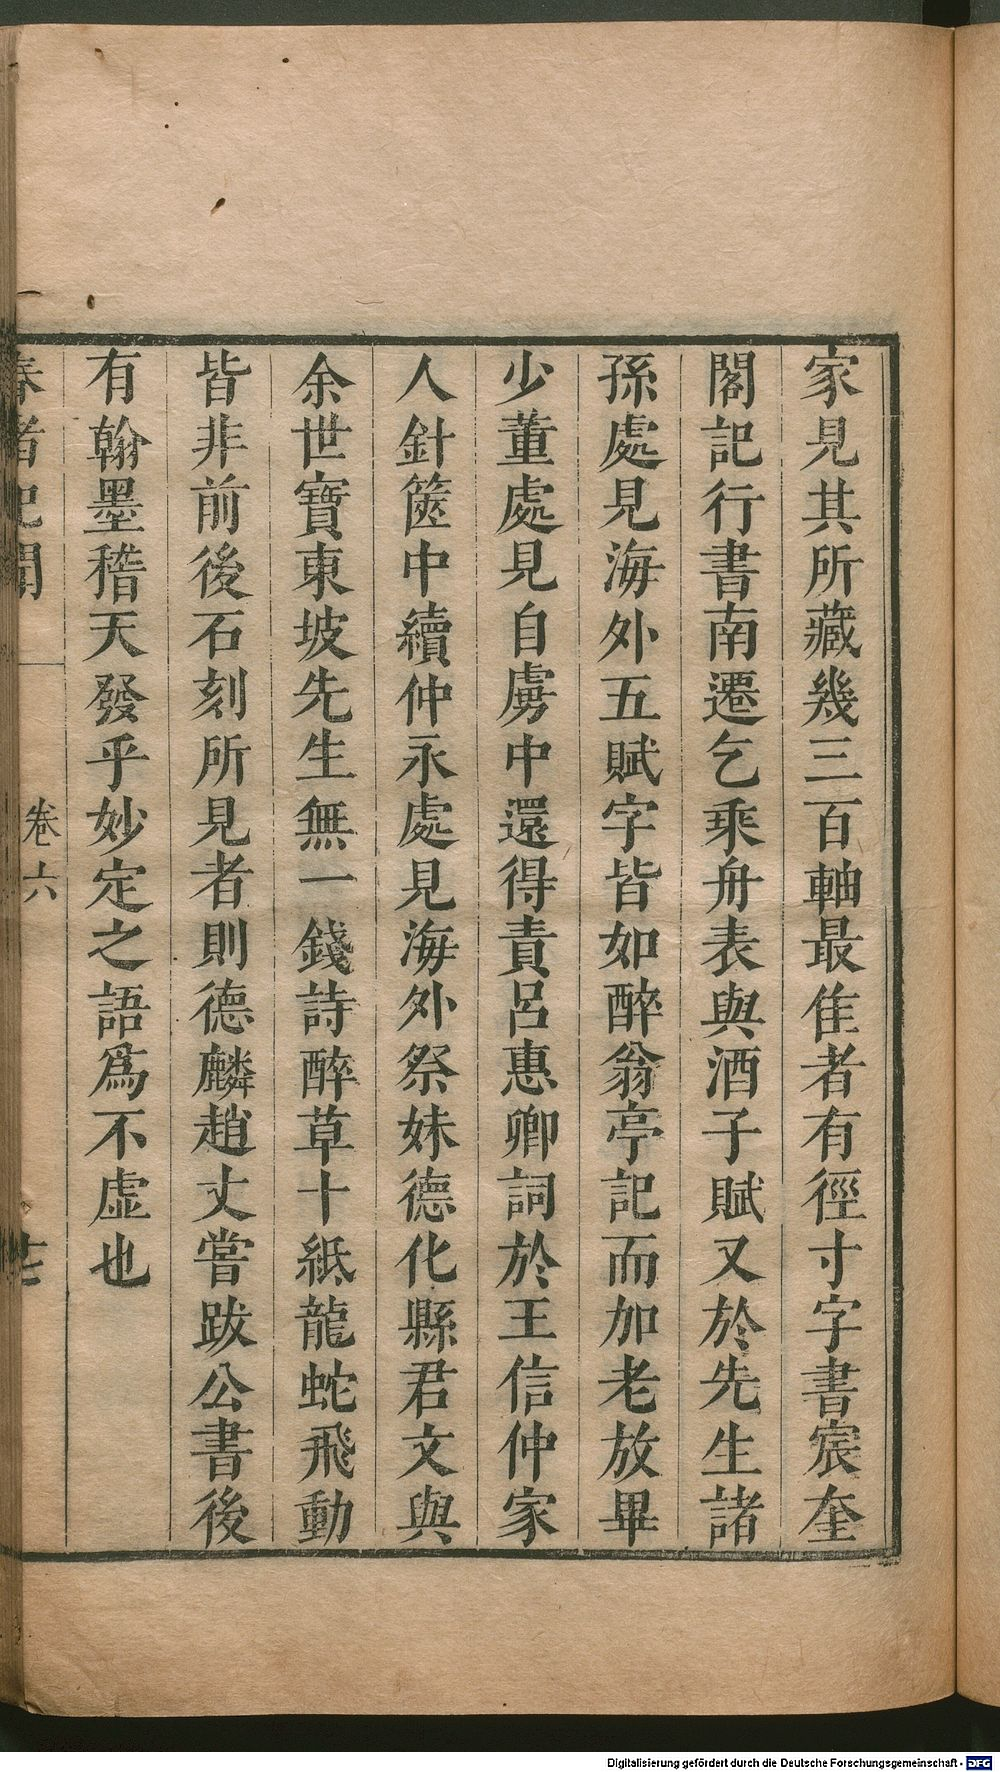 家見其所藏幾三百軸最佳者有徑寸字書宸奎
閣記行書南遷乞乘舟表與酒子賦又於先生諸
孫處見海外五賦字皆如醉翁亭記而加老放畢
少董處見自虜中還得責呂惠卿詞於王信仲家
人針篋中續仲永處見海外祭妹德化縣君文與
余世寶東坡先生無一錢詩醉草十紙龍蛇飛動
皆非前後石刻所見者則德麟趙丈嘗跋公書後
有翰墨稽天發乎妙定之語爲不虛也
春渚紀聞
卷六
Digitalisierung gefördert durch die Deutsche Forschungsgemeinschaft - DFG